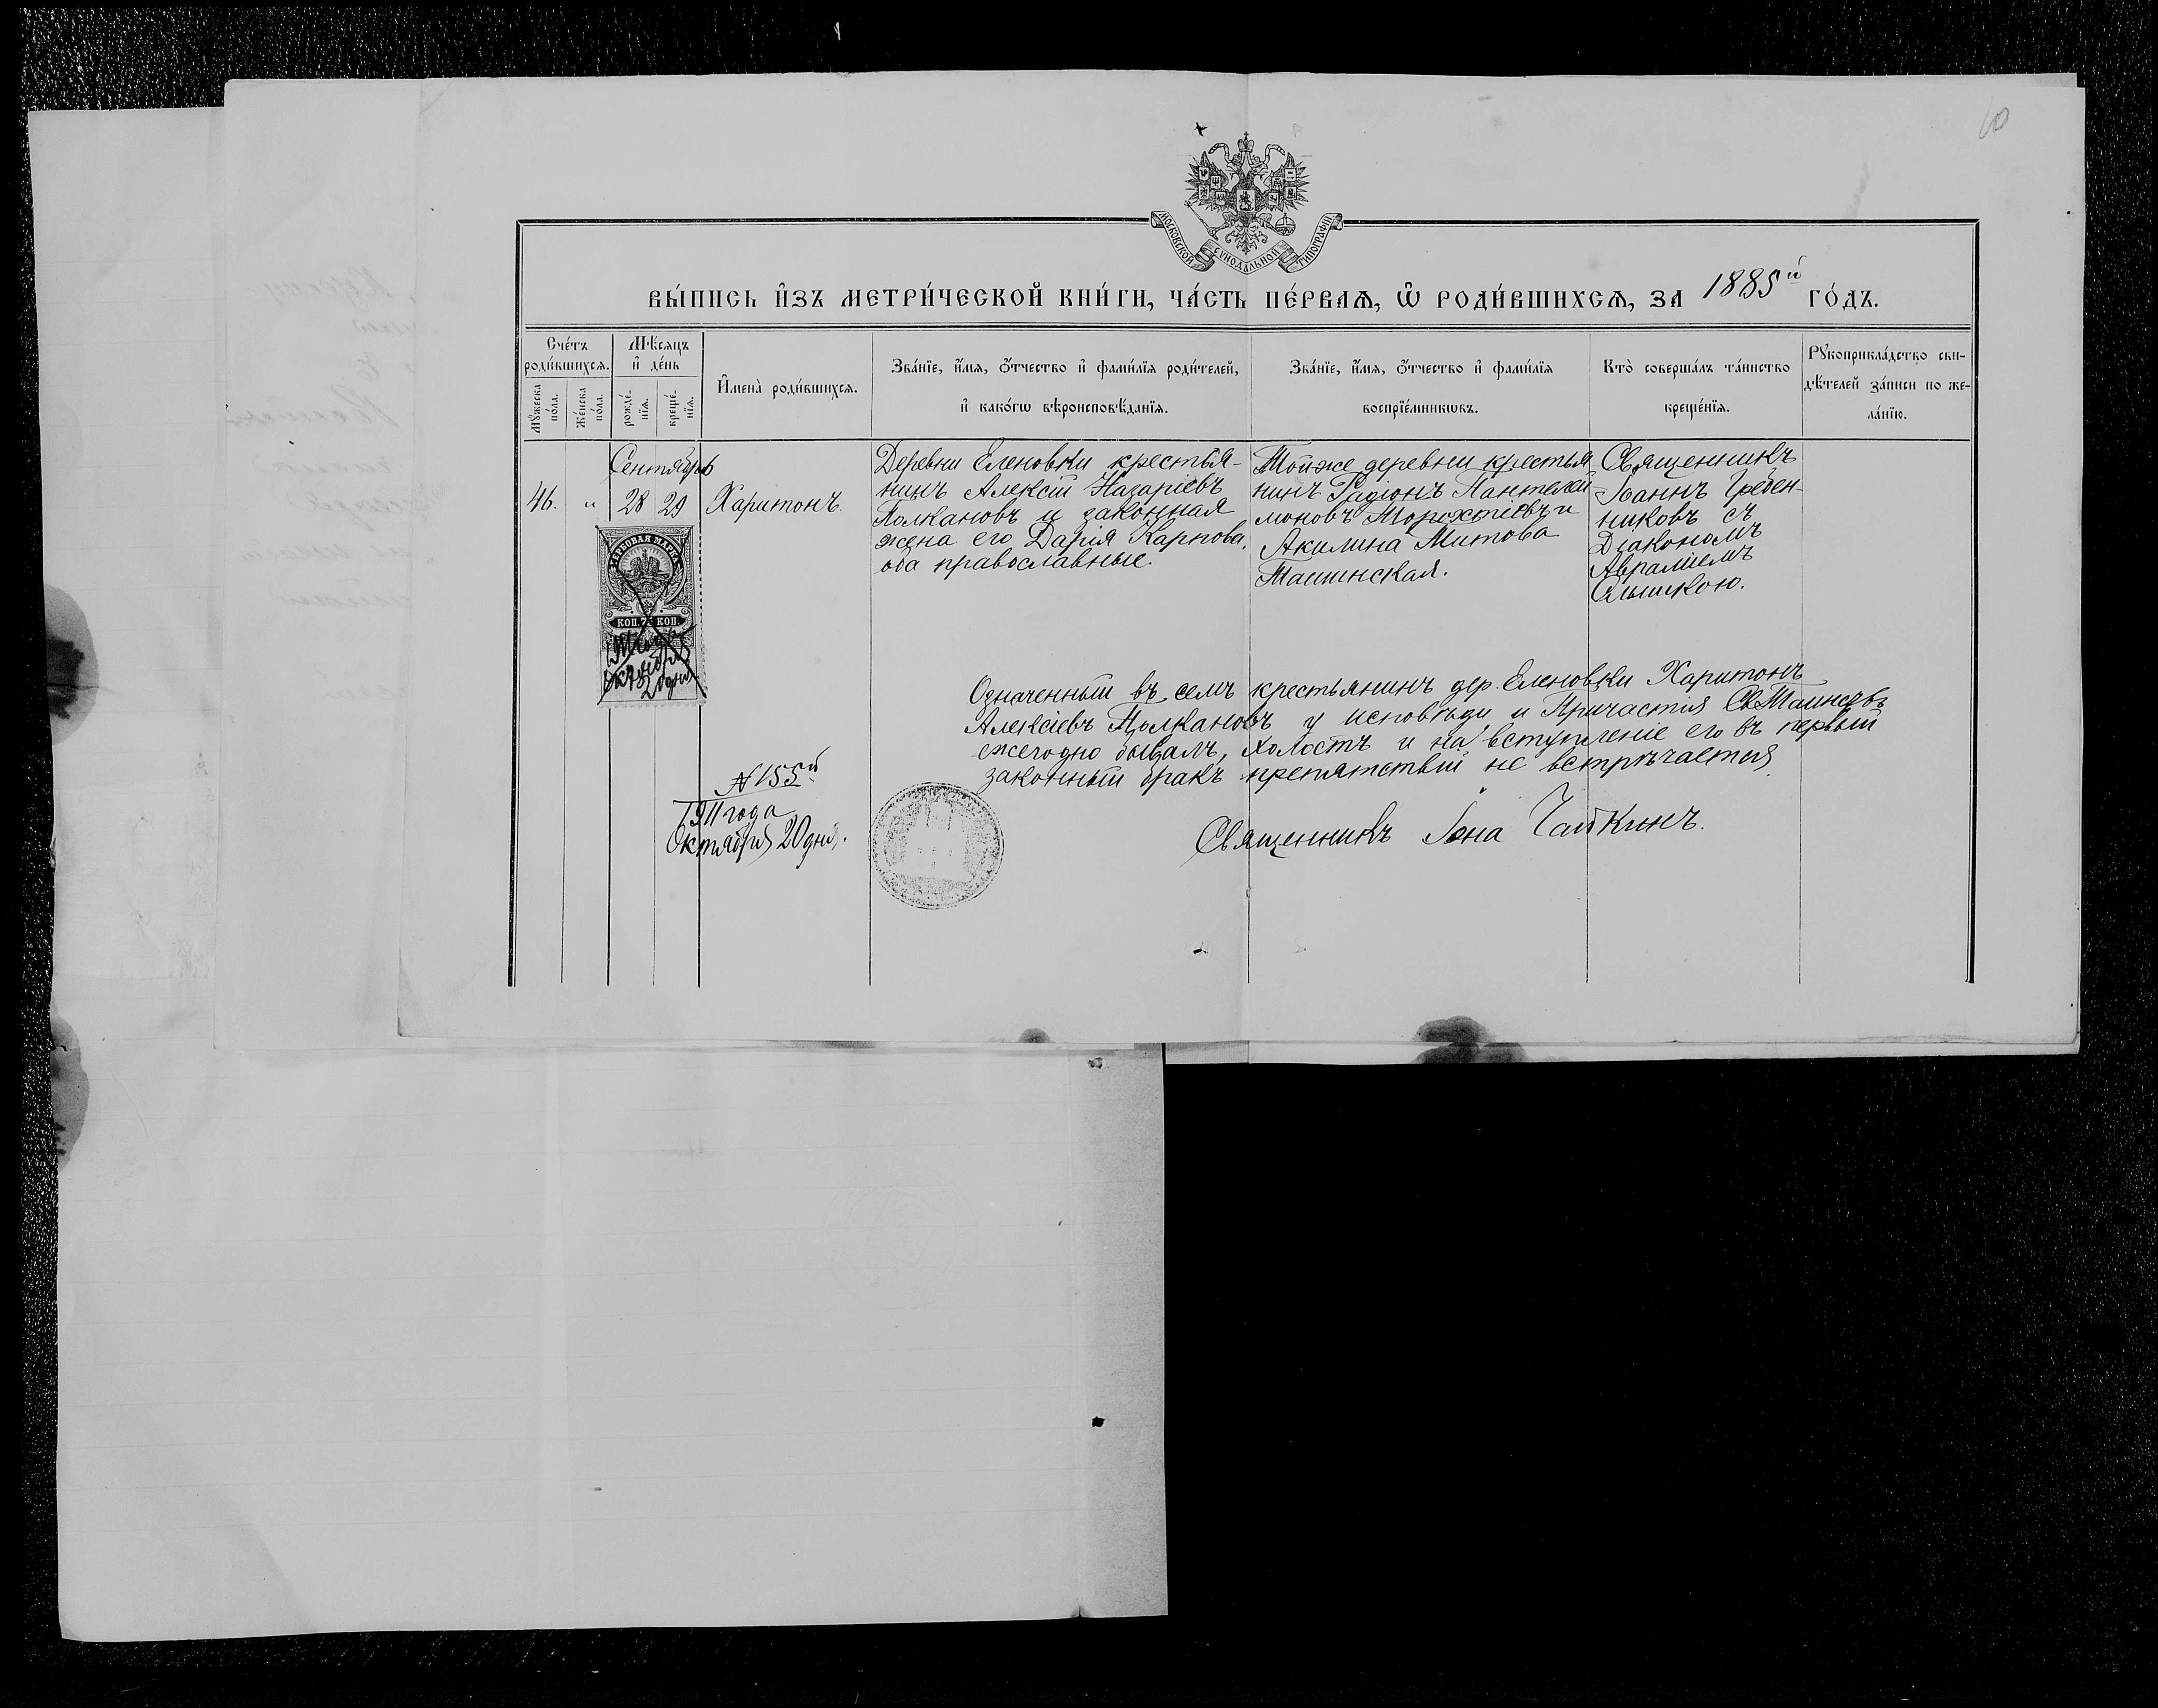 60
МОСКОВСКОЙ СѴНОДАЛЬНОЙ ТИПОГРАФІИ
ВЫ́ПИСЬ И҆ЗЪ МЕТРИ́ЧЕСКОЙ КНИ́ГИ, ЧА́СТЬ ПЕ́РВАѦ, Ѽ РОДИ́ВШИХСѦ, ЗА 1885й ГО́ДЪ.
Сче́тъ
роди́вшихсѧ.
Мꙋ́жеска
по́ла.
Же́нска
по́ла.
Мѣ́сѧцъ
и҆ де́нь
рожде́-
нїѧ.
креще́-
нїѧ.
И҆мена̀ роди́вшихсѧ.
Зва́нїе, и҆́мѧ, ѻ҆́тчество и҆ фами́лїѧ роди́телей,
и҆ како́гѡ вѣроисповѣ́данїѧ.
Зва́нїе, и҆́мѧ, ѻ҆́тчество и҆ фами́лїѧ
воспрїе́мникѡвъ.
Кто̀ соверша́лъ та́инство
креще́нїѧ.
Рꙋкоприкла́дство сви-
дѣ́телей за́писи по же-
ла́нїю.
Сентябрь
46. " 28 29 Харитонъ.
Деревни Еленовки крестья-
нинъ Алексій Назаріевъ
Полкановъ и законная
жена его Дарія Карпова,
оба православные.
Тойже деревни крестья
нинъ Радіонъ Пантелей
моновъ и
Акилина Митова
Священникъ
Іоаннъ Гребен-
никовъ съ
Діакономъ
Авраміемъ
ГЕРБОВАЯ МАРКА
КОП. 75 КОП.
1911 года
октября
20 дня
Означенный въ семъ крестьянинъ дер. Еленовки Харитонъ
Алексіевъ Полкановъ у исповѣди и Причастія Св. Таинствъ
ежегодно бывалъ, холостъ и на вступленіе его въ первый
законный бракъ препятствій не встрѣчается.
№ 155й
1911 года
Октября 20 дня.
Священникъ Іона Чайкинъ.